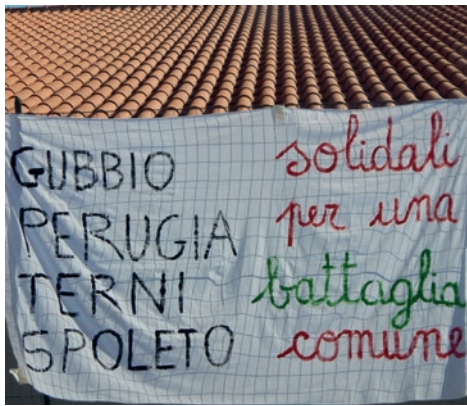 GUBBIO
PERUGIA
TERNI
SPOLETO
solidali
per una
battaglia
comune